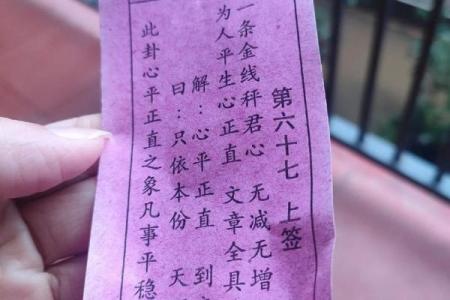 第六十七 上签
一条金线秤君心 无减无增
为人平生心正直 文章全具
解：心平正直 到
曰：只依本份 天
此封心平正直之象凡事平稳